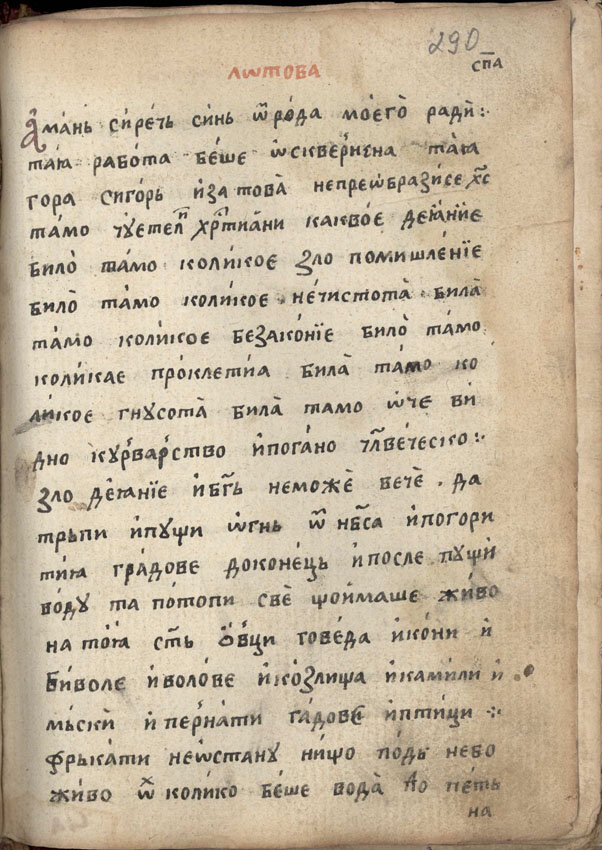 290
спа
лѡтова
Амань сирѣчь синь ѿ рода моего ради :
таꙗ работа беше ѡскверънена таꙗ
гора сигорь иза това непреѡбразисе хс
тамо чуетели христиани каквое деꙗние
било тамо коликое зло помишление
било тамо коликое нечистота била
тамо коликое безаконїе било тамо
коликае проклетиа била тамо ко
ликое гнусота била тамо ѡче ви
дно курварство ипогано члвеческо :
зло деꙗнїе ибгь неможе вече . да
трьпи ипущи ѡгнь ѿ нбса ипогори
тиꙗ градове доконець ипосле пущи
воду та потопи све щоимаше живо
на тоꙗ сть ѻвци говеда икони и
биволе иволове икозлища икамили и
мьски и пернати гадове иптици :
фрькати неѡстану нищо подь небо
живо ѿ колико беше вода до петь
на